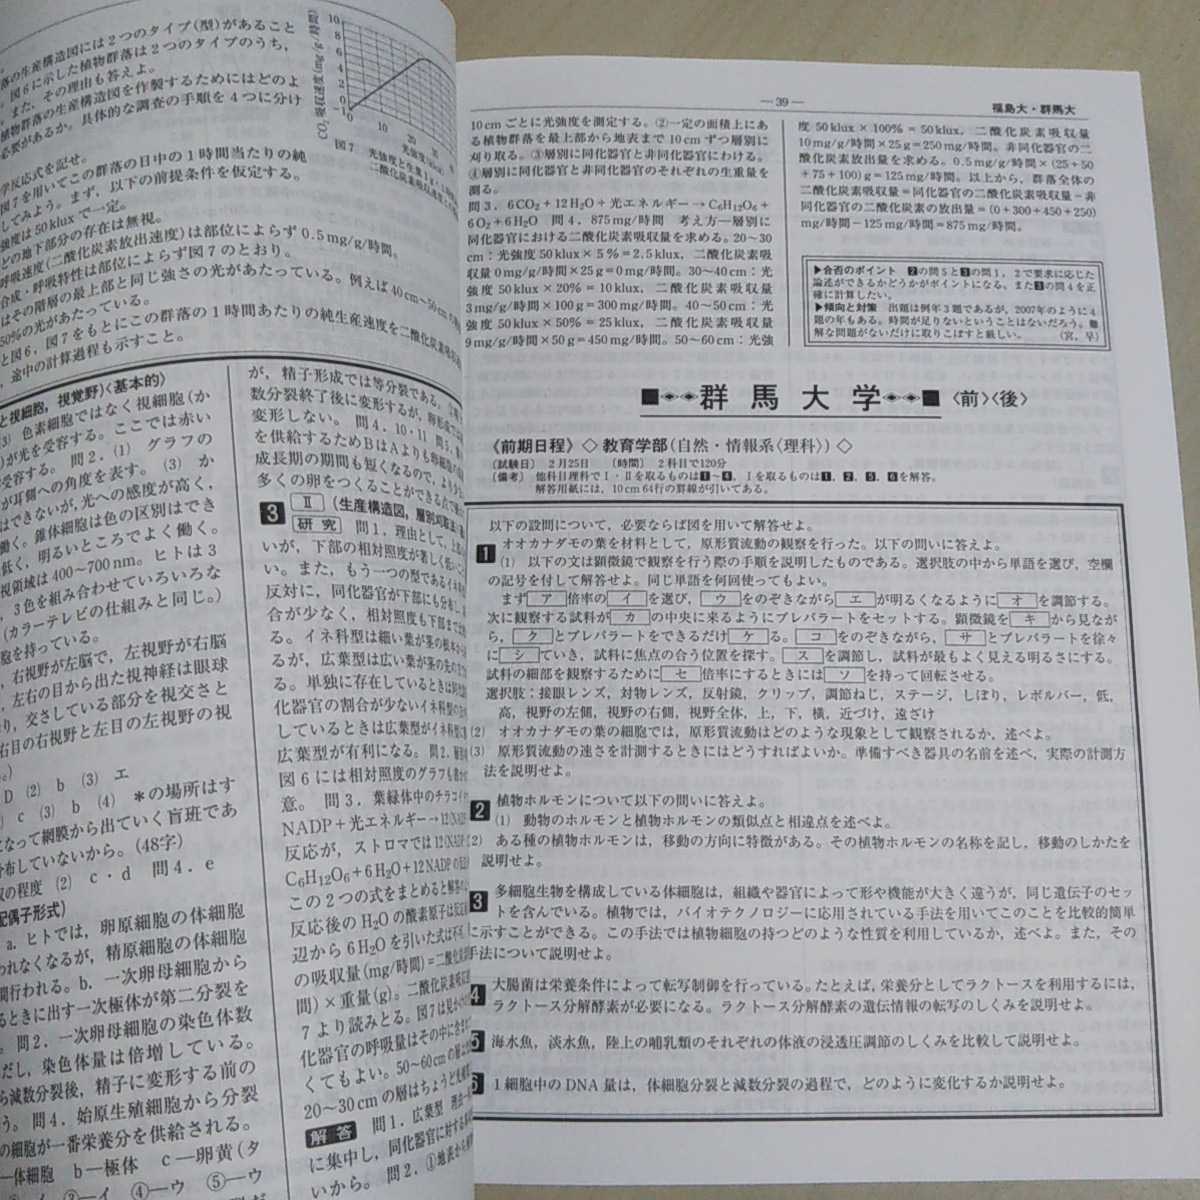 落の生産構造図には2つのタイプ(型)があること
図6に示した植物群落は2つのタイプのうち,
また,その理由も答えよ。
植物群落の生産構造図を作製するためにはどのよ
必要があるか。具体的な調査の手順を4つに分け
学反応式を記せ。
図7を用いてこの群落の日中の1時間当たりの純
してみよう。まず,以下の前提条件を仮定する。
強度は50kluxで一定。
どの地下部分の存在は無視。
呼吸速度(二酸化炭素放出速度)は部位によらず0.5mg/g/時間。
合成・呼吸特性は部位によらず図7のとおり。
はその階層の最上部と同じ強さの光があたっている。例えば40cm〜50cmの
50%の光があたっている。
と図6,図7をもとにこの群落の1時間あたりの純生産速度を二酸化炭素吸収
,途中の計算過程も示すこと。
10
8
6
4
2
0
-1
0
10
20
図7 光強度と生葉1g・1時間
二酸化炭素吸収速度
と視細胞,視覚野)〈基本的〉
(3) 色素細胞ではなく視細胞(か
)が光を受容する。ここでは赤い
受容する。問2.(1) グラフの
が耳側への角度を表す。(3) か
はできないが,光への感度が高く,
働く。錐体細胞は色の区別はでき
低く,明るいところでよく働く。
視領域は400〜700nm。ヒトは3
3色を組み合わせていろいろな
(カラーテレビの仕組みと同じ。)
胞を持っている。
,左視野が右脳
,右視野が左脳で,左視野が右脳
,左右の目から出た視神経は眼球
り,交さしている部分を視交さと
右目の右視野と左目の左視野の視
D (2) b (3) エ
c (3) b (4) *の場所はす
なって網膜から出ていく盲班であ
分布していないから。(48字)
収の程度 (2) c・d 問4. e
配偶子形式)
a. ヒトでは,卵原細胞の体細胞
われなくなるが,精原細胞の体細胞
間行われる。b. 一次卵母細胞から
るときに出す一次極体が第二分裂を
。問2. 一次卵母細胞の染色体数
だし,染色体量は倍増している。
ら減数分裂後,精子に変形する前の
う。問4. 始原生殖細胞から分裂
の細胞が一番栄養分を供給される。
―体細胞 b―極体 c―卵黄(タ
③―イ ④―ウ ⑤―ウ
が,精子形成では等分裂である。
数分裂終了後に変形するが,卵形成では
変形しない。 問4. 10・11 問5.
を供給するためBはAよりも卵細胞の
成長期の期間も短くなるので,より
多くの卵をつくることができる点で
3 Ⅱ (生産構造図,層別刈取法)
研究 問1. 理由として,上部
いが,下部の相対照度が著しく低い
い。また,もう一つの型であるイネ科
反対に,同化器官が下部にも分布し,
合が少なく,相対照度も下部までは
る。イネ科型は細い葉が茎の根本から
るが,広葉型は広い葉が茎の先の
る。単独に存在しているときは同化器
化器官の割合が少ないイネ科型の
しているときは広葉型がイネ科型に
広葉型が有利になる。問2.
図6には相対照度のグラフも書かれ
意。 問3. 葉緑体中のチラコイド
NADP+光エネルギー→12NADP
反応が,ストロマでは12NADP
C₆H₁₂O₆+6H₂O+12NADPの反応
この2つの式をまとめると解答の
反応後のH₂Oの酸素原子は反応前
辺から6H₂Oを引いた式は不可。
の吸収量(mg/時間)=二酸化炭素吸収
間)×重量(g)。二酸化炭素吸収
7より読みとる。図7は見かけの
化器官の呼吸量はその中に含まれ
くてもよい。50〜60cmの層は
20〜30cmの層はちょうど光補償
解答 問1. 広葉型 理由
に集中し,同化器官に対する非同
いから。問2. ①地表から
―39―
福島大・群馬大
10cmごとに光強度を測定する。②一定の面積上にあ
る植物群落を最上部から地表まで10cmずつ層別に
刈り取る。③層別に同化器官と非同化器官にわける。
④層別に同化器官と非同化器官のそれぞれの生重量を
測る。
問3. 6CO₂+12H₂O+光エネルギー→C₆H₁₂O₆+
6O₂+6H₂O 問4. 875mg/時間 考え方―層別に
同化器官における二酸化炭素吸収量を求める。20〜30
cm:光強度50klux×5%=2.5klux,二酸化炭素吸
収量0mg/g/時間×25g=0mg/時間。30〜40cm:光
強度50klux×20%=10klux,二酸化炭素吸収量
3mg/g/時間×100g=300mg/時間。40〜50cm:光
強度50klux×50%=25klux,二酸化炭素吸収量
9mg/g/時間×50g=450mg/時間。50〜60cm:光強
度50klux×100%=50klux,二酸化炭素吸収量
10mg/g/時間×25g=250mg/時間。非同化器官の二
酸化炭素放出量を求める。0.5mg/g/時間×(25+50
+75+100)g=125mg/時間。以上から,群落全体の
二酸化炭素吸収量=同化器官の二酸化炭素吸収量-非
同化器官の二酸化炭素の放出量=(0+300+450+250)
mg/時間-125mg/時間=875mg/時間。
▶合否のポイント 2の問5と3の問1,2で要求に応じた
論述ができるかどうかがポイントになる,また3の問4を正
確に計算したい。
▶傾向と対策 出題は例年3題であるが,2007年のように4
題の年もある。時間が足りないということはないだろう。難
解な問題がないだけに取りこぼすと厳しい。 (宮,早)
■◆◆群馬大学◆◆■〈前〉〈後〉
《前期日程》◇教育学部(自然・情報系〈理科〉)◇
〔試験日〕 2月25日 〔時間〕 2科目で120分
〔備考〕 他科目理科でⅠ・Ⅱを取るものは1〜4,Ⅰを取るものは1,2,5,6を解答。
解答用紙には,10cm64行の罫線が引いてある。
以下の設問について,必要ならば図を用いて解答せよ。
1 オオカナダモの葉を材料として,原形質流動の観察を行った。以下の問いに答えよ。
(1) 以下の文は顕微鏡で観察を行う際の手順を説明したものである。選択肢の中から単語を選び,空欄
の記号を付して解答せよ。同じ単語を何回使ってもよい。
まずア倍率のイを選び,ウをのぞきながらエが明るくなるようにオを調節する。
次に観察する試料がカの中央に来るようにプレパラートをセットする。顕微鏡をキから見なが
ら,クとプレパラートをできるだけケる。コをのぞきながら,サとプレパラートを徐々
にシていき,試料に焦点の合う位置を探す。スを調節し,試料が最もよく見える明るさにする。
試料の細部を観察するためにセ倍率にするときにはソを持って回転させる。
選択肢:接眼レンズ,対物レンズ,反射鏡,クリップ,調節ねじ,ステージ,しぼり,レボルバー,低,
高,視野の左側,視野の右側,視野全体,上,下,横,近づけ,遠ざけ
(2) オオカナダモの葉の細胞では,原形質流動はどのような現象として観察されるか,述べよ。
(3) 原形質流動の速さを計測するときにはどうすればよいか。準備すべき器具の名前を述べ,実際の計測方
法を説明せよ。
2 植物ホルモンについて以下の問いに答えよ。
(1) 動物のホルモンと植物ホルモンの類似点と相違点を述べよ。
(2) ある種の植物ホルモンは,移動の方向に特徴がある。その植物ホルモンの名称を記し,移動のしかたを
説明せよ。
3 多細胞生物を構成している体細胞は,組織や器官によって形や機能が大きく違うが,同じ遺伝子のセッ
トを含んでいる。植物では,バイオテクノロジーに応用されている手法を用いてこのことを比較的簡単
に示すことができる。この手法では植物細胞の持つどのような性質を利用しているか,述べよ。また,その
手法について説明せよ。
4 大腸菌は栄養条件によって転写制御を行っている。たとえば,栄養分としてラクトースを利用するには,
ラクトース分解酵素が必要になる。ラクトース分解酵素の遺伝情報の転写のしくみを説明せよ。
5 海水魚,淡水魚,陸上の哺乳類のそれぞれの体液の浸透圧調節のしくみを比較して説明せよ。
6 1細胞中のDNA量は,体細胞分裂と減数分裂の過程で,どのように変化するか説明せよ。